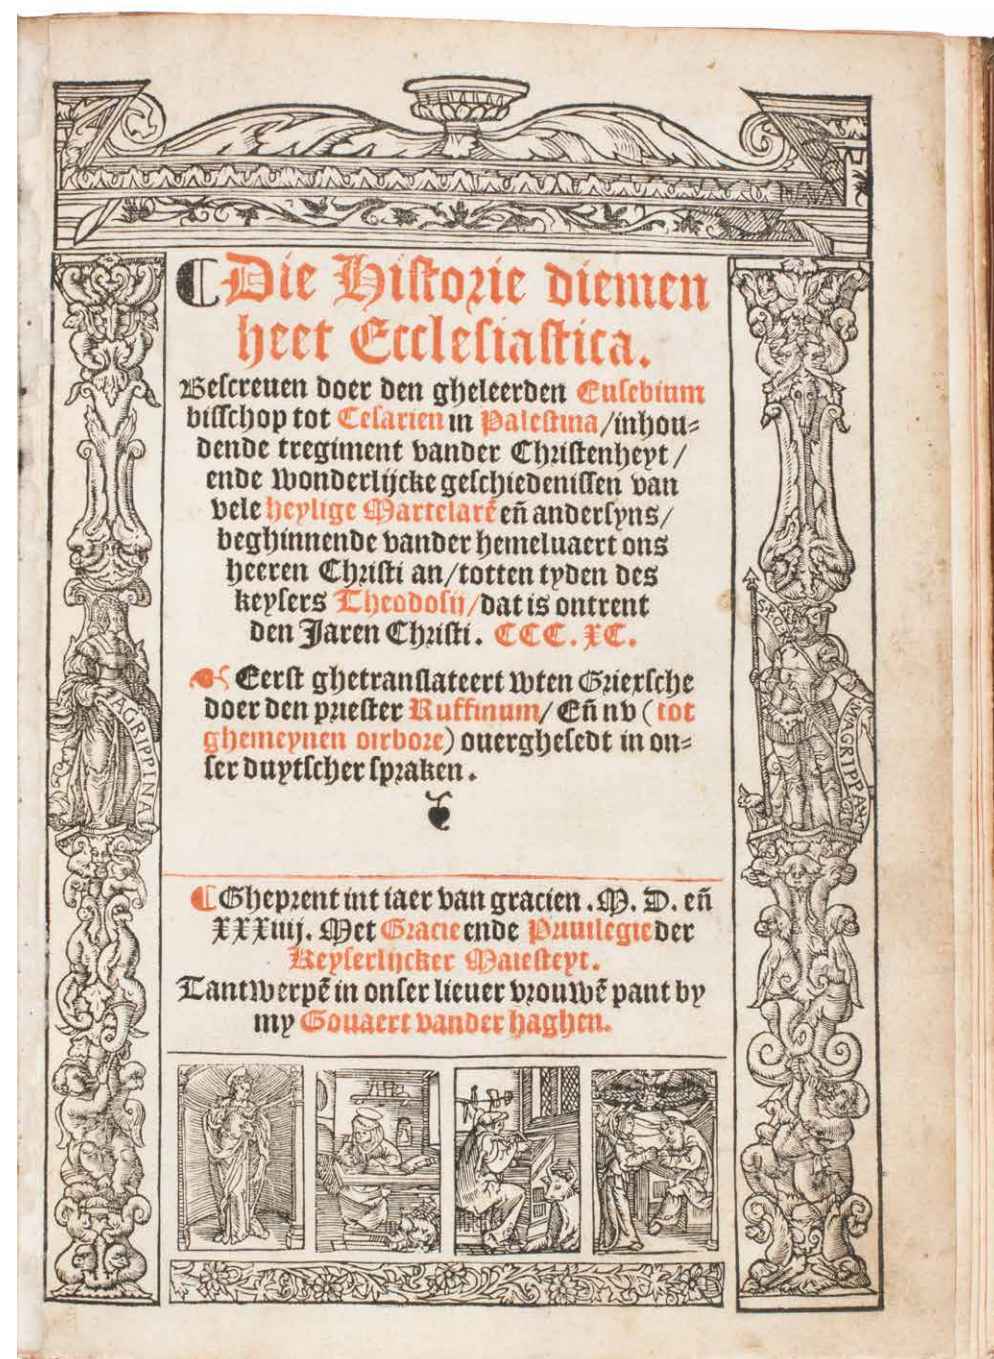 Die Historie diemen
heet Ecclesiastica.
Bescreuen doer den gheleerden Eusebium
bisschop tot Cesarien in Palestina/inhou⸗
dende tregiment vander Christenheyt/
ende wonderlijcke geschiedenissen van
vele heylige Martelarẽ eñ andersyns/
beghinnende vander hemeluaert ons
heeren Christi an/totten tyden des
keysers Theodosij/dat is ontrent
den Jaren Christi. CCC. XC.
Eerst ghetranslateert wten Griexsche
doer den priester Ruffinum/Eñ nv (tot
ghemeynen oirbore) ouerghesedt in on⸗
ser duytscher spraken.
Gheprent int iaer van gracien. M. D. eñ
XXXiiij. Met Gracie ende Priuilegie der
Keyserlijcker Maiesteyt.
Tantwerpẽ in onser lieuer vrouwẽ pant by
my Gouaert vander haghen.
AGRIPPINA
S.P.Q.
M.AGRIPPA